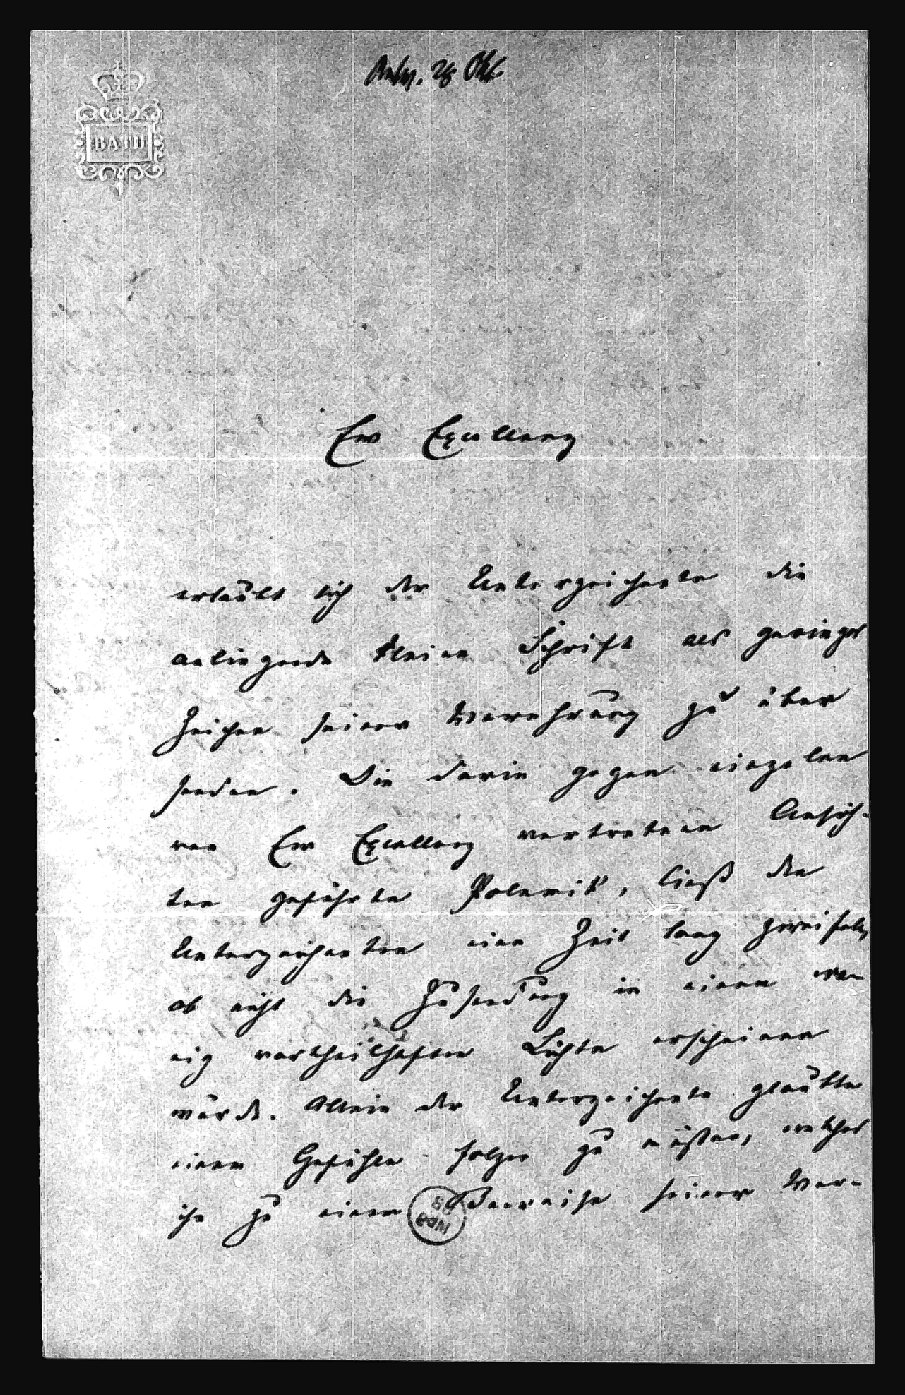 Antw. 28 Okt.
BATH
Ew Excellenz
erlaubt sich der Unterzeichnete die
anliegende kleine Schrift als geringes
Zeichen seiner Verehrung zu über
senden. Die darin gegen einzelne
von Ew Excellenz vertretene Ansich-
ten geführte Polemik, ließ den
Unterzeichneten eine Zeit lang zweifeln,
ob nicht die Zusendung in einem we-
nig vortheilhaften Lichte erscheinen
würde. Allein der Unterzeichnete glaubte
einem Gefühle folgen zu müssen, welches
ihn zu einem Beweise seiner Ver-